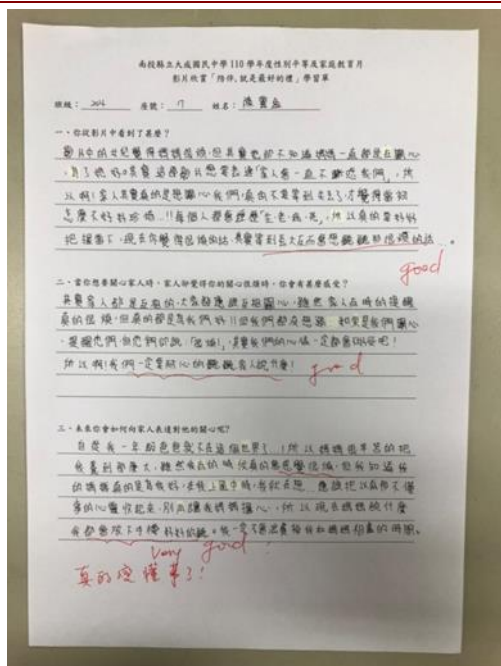 南投縣立大成國民中學 110 學年度性別平等及家庭教育月
影片欣賞「陪伴,就是最好的禮」學習單
班級: 204 座號: 17 姓名: 陳
一、你從影片中看到了甚麼?
影片中的女兒覺得媽媽很煩,但其實她卻不知道媽媽一直都是在關心
,為了她好。其實這部影片想要表達「家人會一直不斷 我們」,所
以啊!家人其實真的是想關心我們,真的不要等到失去了,才覺得當初
怎麼不好好珍惜…!!每個人都會經歷生、老、病、死,所以真的要好好
把握當下,現在你覺得很煩的話,其實等到長大在 想聽聽那很煩的話…。
good
二、當你想要關心家人時,家人卻覺得你的關心很煩時,你會有甚麼感受?
其實家人都是互相的,大家都應該互相關心,雖然家人在時的提醒
真的很煩,但真的都是為我們好!!但我們都沒想過,如果是我們關心
、提醒他們,但他們卻說「很煩!」,其實我們的心情一定都會 吧!
所以啊!我們一定要耐心的聽聽家人說什麼!
good
三、未來你會如何向家人表達對他的關心呢?
自從我一年級爸爸就不在這個世界了…!所以媽媽很辛苦的把
我養到那麼大,雖然有的時候真的會感覺很煩,但我知道我
的媽媽真的是為我好,在我 中時,我就在想,應該把以前那不懂
事的心靈收起來,別再讓我媽媽擔心,所以現在媽媽說什麼
我都會放下手機好好的聽。我一定不會浪費每個和媽媽相處的時間。
very good!
真的很懂事了!